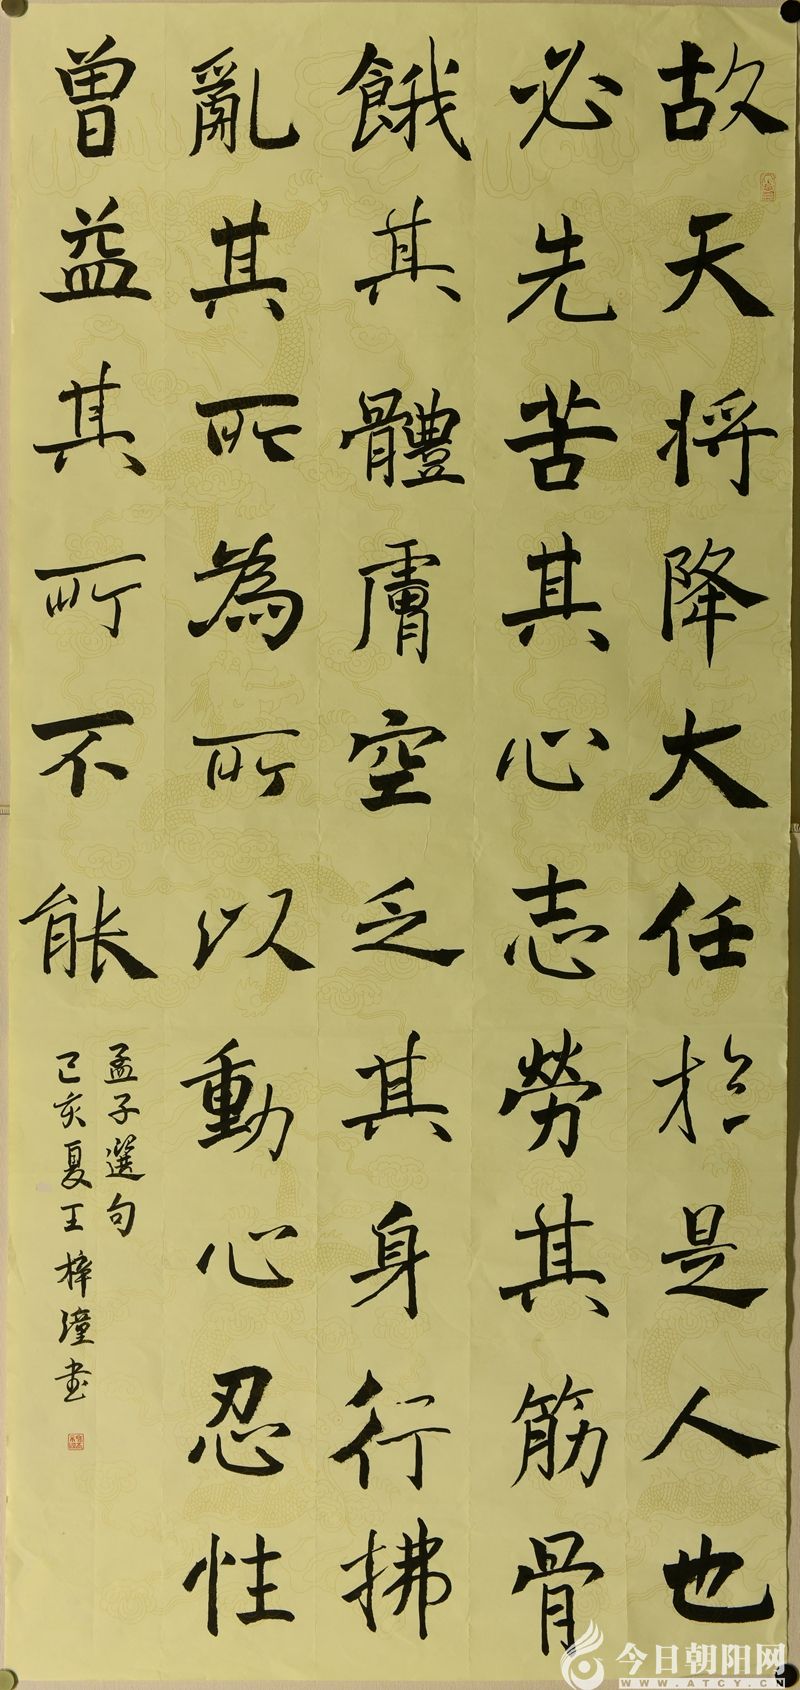 故天将降大任於是人也
必先苦其心志勞其筋骨
餓其體膚空乏其身行拂
亂其所為所以動心忍性
曾益其所不能
孟子選句
己亥夏王梓潼書
今日朝阳网
WWW.ATCY.CN